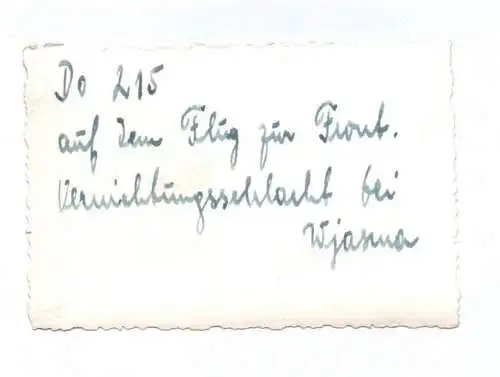 Do 215
auf dem Flug zur Front.
Vernichtungsschlacht bei
Wjasma